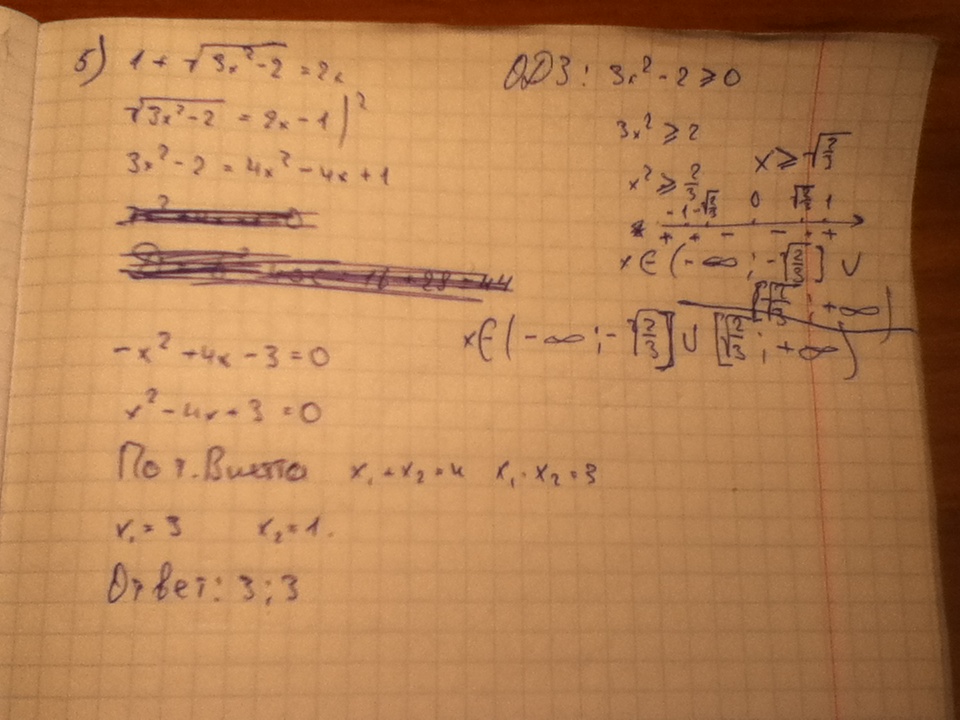 5) 1 + √(3x² - 2) = 2x
√(3x² - 2) = 2x - 1 |²
3x² - 2 = 4x² - 4x + 1
-x² + 4x - 3 = 0
x² - 4x + 3 = 0
По т. Виета x₁ + x₂ = 4 x₁ · x₂ = 3
x₁ = 3 x₂ = 1.
Ответ: 3 ; 3
ОДЗ: 3x² - 2 ≥ 0
3x² ≥ 2
x² ≥ 2/3
x ≥ √(2/3)
-1 -√(2/3) 0 √(2/3) 1
+ + - - + +
x ∈ (-∞ ; -√(2/3)] ∪
[√(2/3) ; +∞)
x ∈ (-∞ ; -√(2/3)] ∪ [√(2/3) ; +∞)